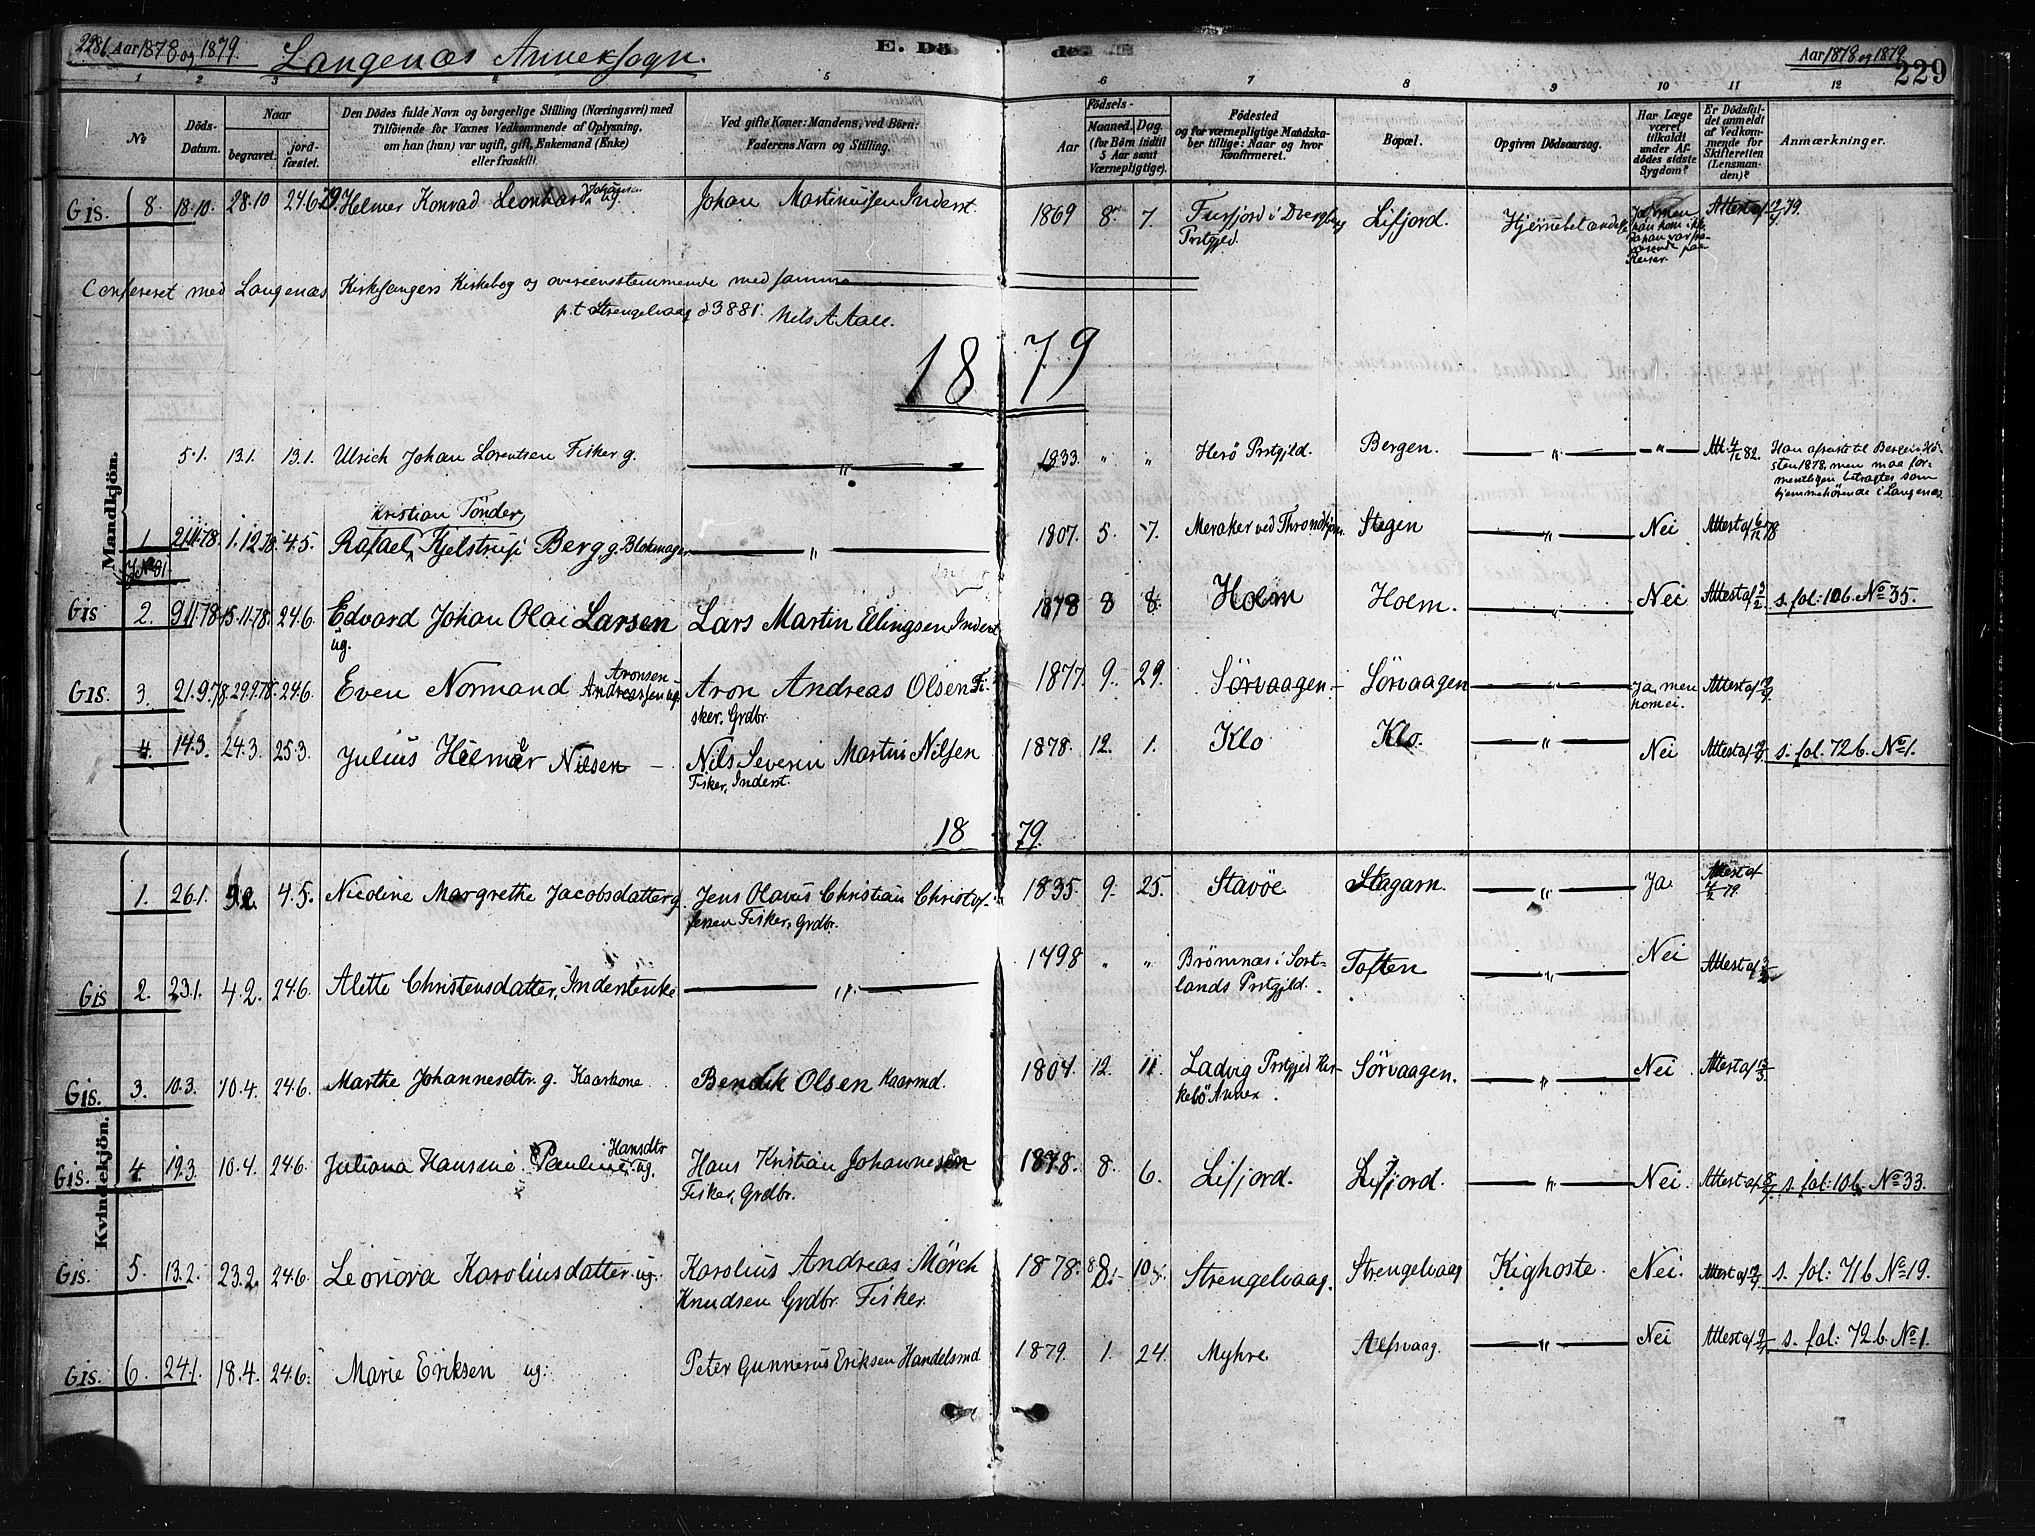 228b Aar 1878 og 1879. Langenæs Annexsogn. E. Dö
de Aar 1878 og 1879 229
1 2 3 4 5 6 7 8 9 10 11 12
№ Döds-Datum. Naar begravet. jordfæstet.
Den Dödes fulde Navn og borgerlige Stilling (Næringsvei) med
Tilföiende for Voxnes Vedkommende af Oplysning,
om han (hun) var ugift, gift, Enkemand (Enke)
eller fraskilt.
Ved gifte Koner: Mandens, ved Börn:
Faderens Navn og Stilling.
Födsels-
Aar Maaned. Dag.
(for Börn indtil
5 Aar samt
Værnepligtige).
Födested
og for værnepligtige Mandska-
ber tillige: Naar og hvor
konfirmeret.
Bopæl.
Opgiven Dödsaarsag.
Har Læge
været
tilkaldt
under Af-
dödes sidste
Sygdom?
Er Dödsfal-
det anmeldt
af Vedkom-
mende for
Skifteretten
(Lensman-
den)?
Anmærkninger.
Gis. 8. 18.10. 28.10 24.6 79. Helmer Konrad Leonhard Johansen ug. Johan Martinussen Inderst. 1869 8. 7. Fursjord i Dvergberg Prstgjd. Lifjord. Hjernebetændelse Ja, men han kom ikke Attest af 79.
Confereret med Langenæs Kirkesangers Kirkebog og overeensstemmende med samme
p.t Strengelvaag d 3 8 81. Nils A. Aall.
1879
Mandkjön.
5.1. 13.1. 13.1. Ulrich Johan Lorentsen Fisker g. — " — 1833. " " Herö Prstgjld. Bergen. — " — — " — Att. 4/1 82. Han afreiste til Bergen Hö-
sten 1878, men maa for-
mentligen betragtes som
hjemmehörende i Langenæs.
Kristian Tönder
1 21.11.78. 1.12.78. 4.5. Rafael Kjelstrup Berg, g. Blokmager — " — 1807. 5. 7. Meraker ved Throndhjem. Stegen — " — Nei Attest af 6/12 78
Gis 2. 9.11.78 15.11.78. 24.6. Edvard Johan Olai Larsen Lars Martin Ellingsen Inderst 1878 8 8. Holm Holm. — " — Nei Attest af 3/2 s. fol: 10b. № 35.
ug.
Gis. 3. 21.9.78. 29.9.78. 24.6. Even Normand Andreassen Aronsen ug. Aron Andreas Olsen Fi- 1877. 9. 29. Sörvaagen Sörvaagen — " — Ja, men Attest af
sker. Grdbr. kom ei.
4. 14.3. 24.3. 25.3. Julius Hilmer Nilsen — Nils Severin Martin Nilsen 1878. 12. 1. Klo Klo. — " — Nei Attest af s. fol: 72b. № 1.
Fisker, Inderst.
1879.
Kvindekjön.
1. 26.1. 9.2. 4.5. Nicoline Margrethe Jacobsdatter g. Jens Olavus Christian Christof- 1835. 9. 25. Stavöe Stagarn. — " — Ja. Attest af 79.
fersen Fisker, Grdbr.
Gis 2. 23.1. 4.2. 24.6. Alette Christensdatter, Inderstenke — " — 1798 " " Brömnæs i Sort-
lands Prstgjld. Toften — " — Nei Attest af
Gis. 3. 10.3. 10.4. 24.6. Marthe Johannesdtr. g. Kaarkone. Bendik Olsen Kaarmd. 1804. 12. 11. Ladvig Prstgjed Kir-
kebö Annex. Sörvaagen. — " — Nei Attest af
Gis. 4. 12.3. 10.4. 24.6. Juliana Hansine Pauline Hansdtr ug. Hans Kristian Johannesen 1878. 8. 6. Lifjord. Lifjord. — " — Nei. Attest af s. fol: 10b. № 33.
Fisker, Grdbr.
Gis. 5. 13.2. 23.2. 24.6. Leonora Karoliusdatter. ug. Karolius Andreas Mörch 1878. 8. 10. Strengelvaag. Strengelvaag Kighoste. Nei. Attest af s. fol: 71b № 19.
Knudsen Grdbr. Fisker.
Gis. 6. 24.1. 18.4. 24.6. Marie Eriksen ug. Peter Gunnerus Eriksen Handelsmd. 1879. 1. 24. Myhre Alfsvaag. — " — Nei Attest af s. fol: 72b. № 1.